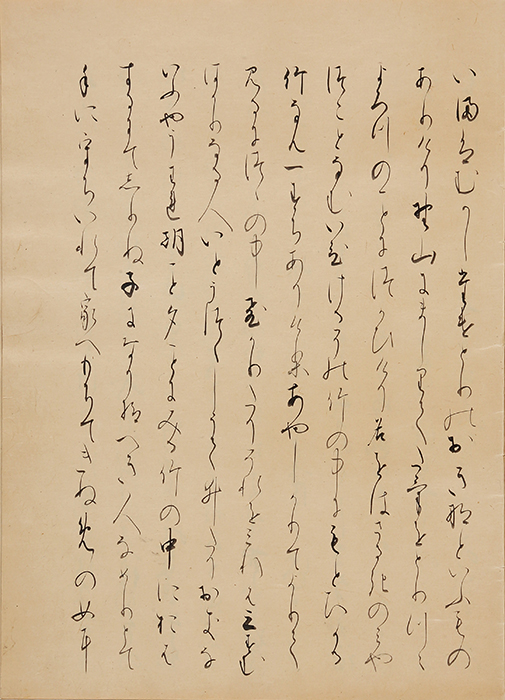 いまはむかしたけとりのおきなといふもの
ありけり野山にましりてたけをとりつゝ
よろつのことにつかひけり名をはさるきのみや
つことなむいひけるその竹の中にもとひかる
竹なん一すちありけるあやしかりてよりて
みるにつゝの中ひかりたりそれをみれは三すむ
はかりなる人いとうつくしうてゐたりおきな
いふやうわれ朝こと夕ことにみる竹の中におは
するにてしりぬ子になり給へき人なめりとて
手にうちいれて家へもちてきぬめの女に